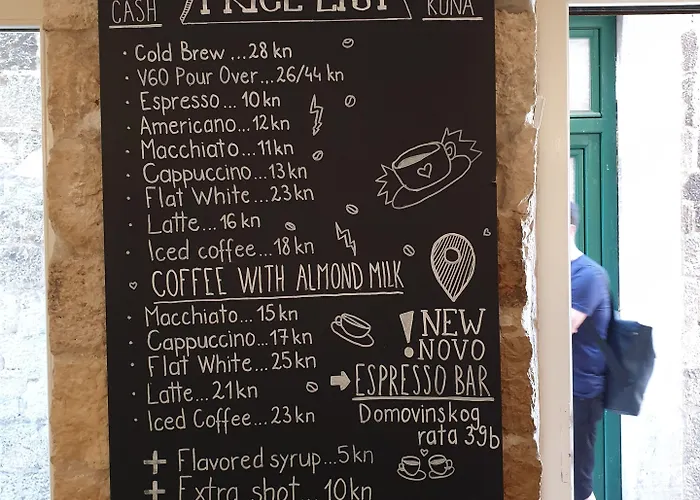 CASH
PRICE LIST
KUNA
· Cold Brew ... 28 kn
· V60 Pour Over... 26/44 kn
· Espresso ... 10 kn
· Americano... 12 kn
· Macchiato... 11 kn
· Cappuccino... 13 kn
· Flat White... 23 kn
· Latte... 16 kn
· Iced coffee... 18 kn
COFFEE WITH ALMOND MILK
· Macchiato... 15 kn
· Cappuccino... 17 kn
· Flat White... 25 kn
· Latte... 21 kn
· Iced Coffee... 23 kn
+ Flavored syrup... 5 kn
+ Extra shot ... 10 kn
! NEW
NOVO
ESPRESSO BAR
Domovinskog
rata 39b